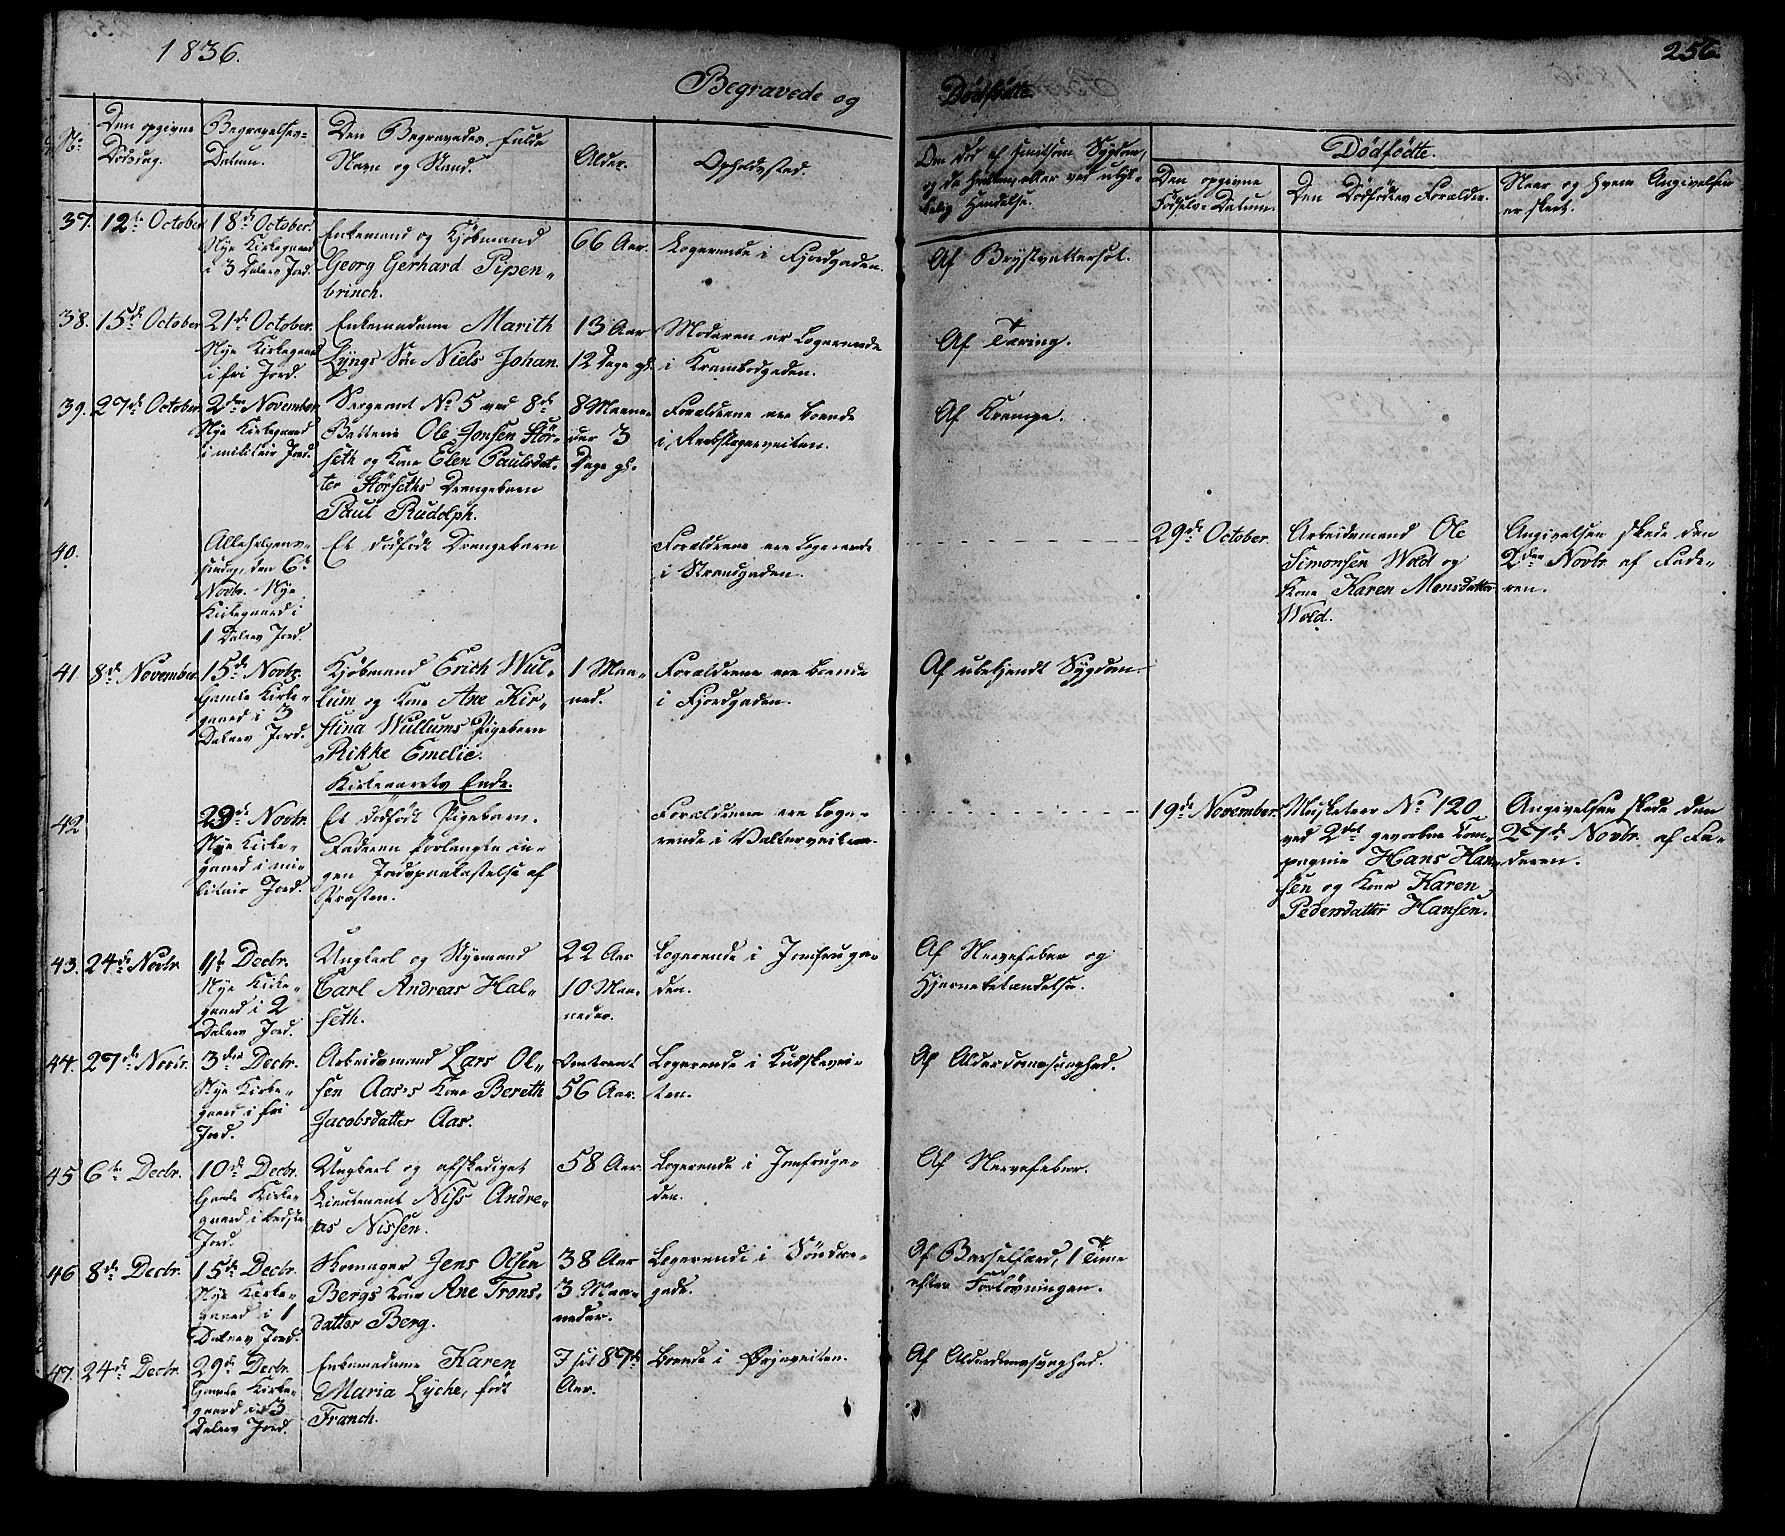 1836.
256.
Begravede og
Dødfødte.
No
Den opgivne
Dødsdag.
Begravelses-
Datum.
Den Begravedes fulde
Navn og Stand.
Alder.
Opholdssted.
Om død af smitsom Sygdom,
Hændelse.
Dødfødte.
Den opgivne
Fødsels Datum.
Den Dødfødtes Forældre.
Naar og hvem Angivelsen
er skeet.
37. 12te October
18de October.
Nye Kirkegaard
i 3 Dalers Jord.
Enkemand og Kjøbmand
Georg Gerhard Pipen-
brinch.
66 Aar.
Logerende i Fjordgaden.
Af Brystvattersot.
38. 15de October
21de October.
Nye Kirkegaard
i fri Jord.
Enkemadame Marith
Lyngs Søn Niels Johan.
13 Aar
12 Dage gl.
Moderen er Logerende
i Krambodgaden.
Af Tæring.
39. 27de October
2den November
Nye Kirkegaard
i militair Jord.
Sergeant No 5 ved 8de
Batterie Ole Jonsen Stör-
seth og Kone Elen Paulsdat-
ter Störseths Drengebarn
Paul Rudolph.
8 Maane-
der 3
Dage gl.
Forældrene ere boende
i Rebslagerveiten.
Af Krampe.
40.
Allehelgens-
søndag, den 6te
Novbr. Nye
Kirkegaard i
1 Dalers Jord.
Et dødfødt Drengebarn
Forældrene ere Logerende
i Strandgaden.
29de October.
Arbeidsmand Ole
Simonsen Wold og
Kone Karen Monsdatter
Wold.
Angivelsen skede den
2den Novbr. af Fade-
ren.
41
8de November
15de Novbr.
Gamle Kirke-
gaard i 3
Dalers Jord.
Kjøbmand Erich Wul-
lum og Kone Ane Kir-
stina Wullums Pigebarn
Rikke Emelie.
1 Maa-
ned.
Forældrene ere boende
i Fjordgaden.
Af ubekjendt Sygdom.
Kirkeaarets Ende.
42
29de Novbr.
Nye Kirke-
gaard i mi-
litair Jord.
Et dødfødt Pigebarn.
Faderen forlangte in-
gen Jordspaakastelse af
Præsten.
Forældrene ere Loge-
rende i Vatterveiten.
19de November.
Musketeer No 120
ved 2det gevorbne Com-
pagnie Hans Han-
sen og Kone Karen
Pedersdatter Hansen.
Angivelsen skede den
27de Novbr. af Fa-
deren.
43. 24de Novbr.
1te Decbr.
Nye Kirke-
gaard i 2
Dalers Jord.
Ungkarl og Styrmand
Carl Andreas Hal-
seth.
22 Aar
10 Maa-
neder.
Logerende i Jomfruga-
den.
Af Nervefeber og
Hjernebetændelse.
44. 27de Novbr.
3die Decbr.
Nye Kirke-
gaard i fri
Jord.
Arbeidsmand Lars Ol-
sen Aas's Kone Bereth
Jacobsdatter Aas.
Omtrent
56 Aar.
Logerende i Kudskevei-
ten.
Af Alderdomssvaghed.
45
6te Decbr.
10de Decbr.
Gamle Kirke-
gaard i bedste
Jord.
Ungkarl og afskediget
Lieutenant Niss Andre-
as Nissen.
58 Aar.
Logerende i Jomfruga-
den.
Af Nervefeber.
46
8de Decbr.
15de Decbr.
Nye Kirke-
gaard i 1
Dalers Jord.
Skomager Jens Olsen
Bergs Kone Ane Trons-
datter Berg.
38 Aar
3 Maa-
neder.
Logerende i Søndre-
gade.
Af Barselfærd, 1 Time
efter Forløsningen.
47. 24de Decbr.
29de Decbr.
Gamle Kirke-
gaard i 3
Dalers Jord.
Enkemadame Karen
Maria Lyche, født
Franch.
I sit 87de
Aar.
Boende i Prinsveiten.
Af Alderdomssvaghed.